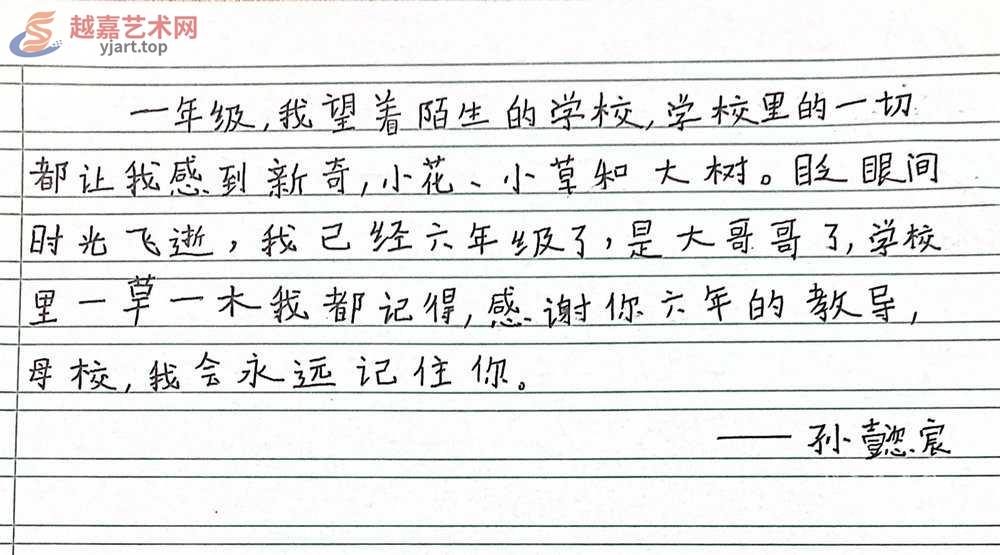 越嘉艺术网
yjart.top
一年级,我望着陌生的学校,学校里的一切
都让我感到新奇,小花、小草和大树。眨眼间
时光飞逝,我已经六年级了,是大哥哥了,学校
里一草一木我都记得,感谢你六年的教导,
母校,我会永远记住你。
——孙懿宸